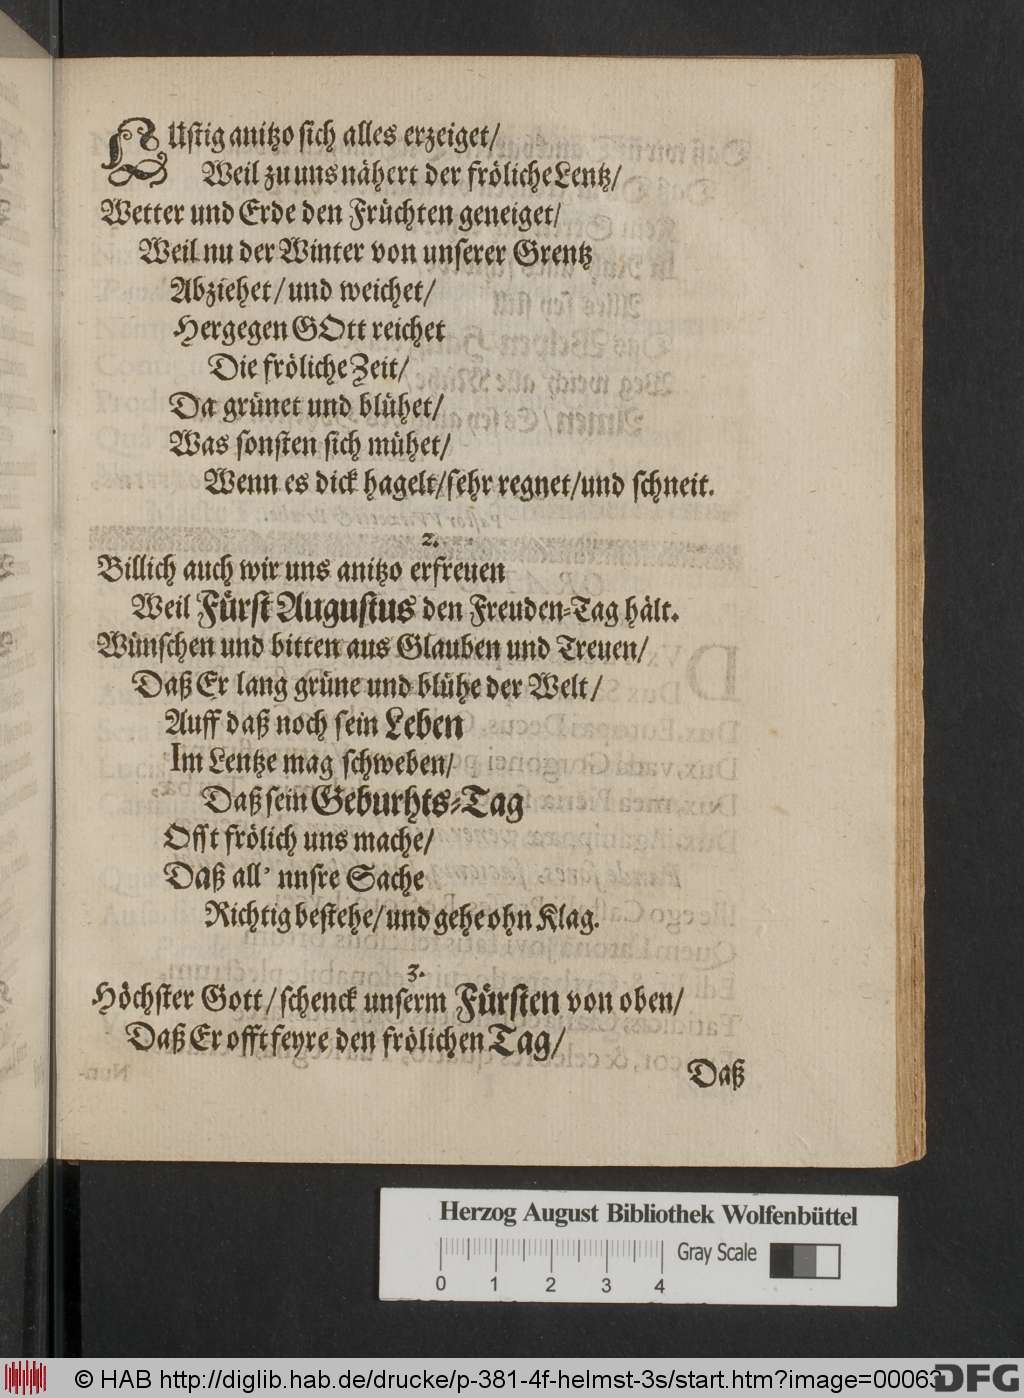 LUstig anitzo sich alles erzeiget/
Weil zu uns nähert der fröliche Lentz/
Wetter und Erde den Früchten geneiget/
Weil nu der Winter von unserer Grentz
Abziehet/ und weichet/
Hergegen GOtt reichet
Die fröliche Zeit/
Da grünet und blühet/
Was sonsten sich mühet/
Wenn es dick hagelt/ sehr regnet/ und schneit.
2.
Billich auch wir uns anitzo erfreuen
Weil Fürst Augustus den Freuden-Tag hält.
Wünschen und bitten aus Glauben und Treuen/
Daß Er lang grüne und blühe der Welt/
Auff daß noch sein Leben
Im Lentze mag schweben/
Daß sein Geburhts-Tag
Offt frölich uns mache/
Daß all' unsre Sache
Richtig bestehe/ und gehe ohn Klag.
3.
Höchster Gott/ schenck unserm Fürsten von oben/
Daß Er offt feyre den frölichen Tag/
Daß
Herzog August Bibliothek Wolfenbüttel
Gray Scale
0 1 2 3 4
© HAB http://diglib.hab.de/drucke/p-381-4f-helmst-3s/start.htm?image=00063
DFG